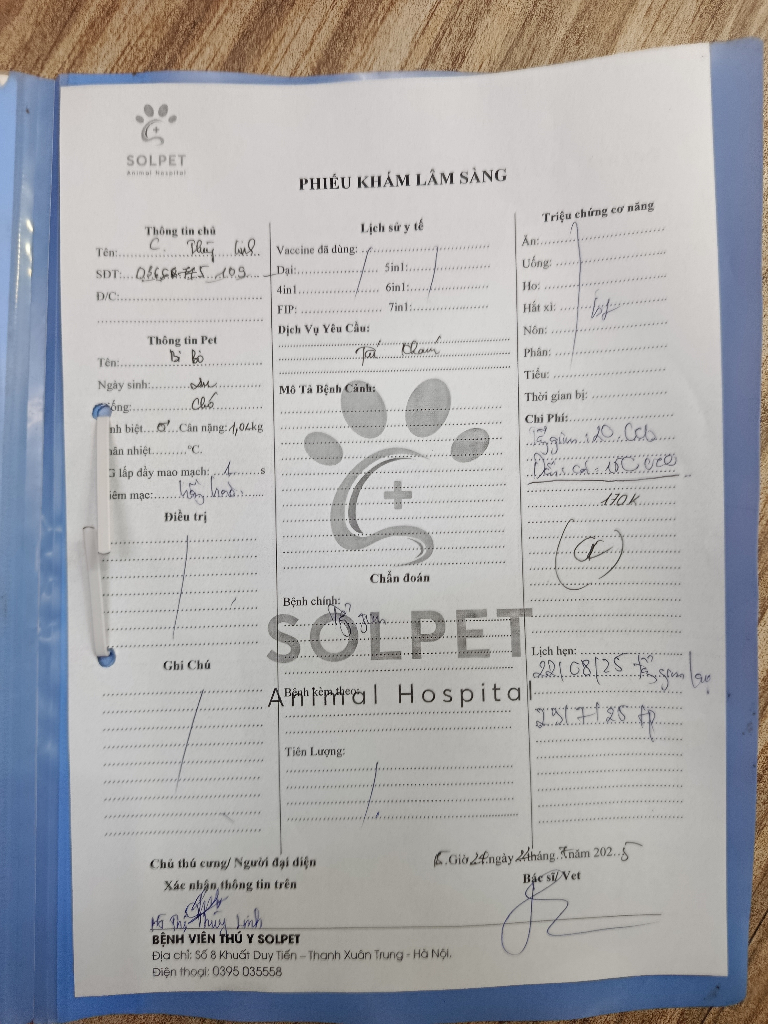 SOLPET
Animal Hospital
PHIẾU KHÁM LÂM SÀNG
Thông tin chủ
Tên: C. Thùy Linh
SDT: 109
Đ/C:
Thông tin Pet
Tên: Bi Bò
Ngày sinh:
ống: Chó
nh biệt ♂ Cân nặng: 1,04kg
ân nhiệt °C.
G lấp đầy mao mạch: 1 s
iêm mạc: hồng hào
Điều trị
Ghi Chú
Lịch sử y tế
Vaccine đã dùng:
Dại: 5in1:
4in1 6in1:
FIP: 7in1:
Dịch Vụ Yêu Cầu:
Tái khám
Mô Tả Bệnh Cảnh:
Chẩn đoán
Bệnh chính: Tẩy giun
SOLPET
Animal Hospital
Bệnh kèm theo:
Tiên Lượng:
Triệu chứng cơ năng
Ăn:
Uống:
Ho:
Hắt xì:
Nôn:
Phân:
Tiểu:
Thời gian bị:
Chi Phí:
Tẩy giun: 20
170K
Lịch hẹn:
22/08/25 Tẩy giun lại
Chủ thú cưng/ Người đại diện
Xác nhận thông tin trên
Thị Thùy Linh
Giờ ngày tháng 7 năm 2025
Bác sĩ/Vet
BỆNH VIỆN THÚ Y SOLPET
Địa chỉ: Số 8 Khuất Duy Tiến – Thanh Xuân Trung - Hà Nội.
Điện thoại: 0395 035558